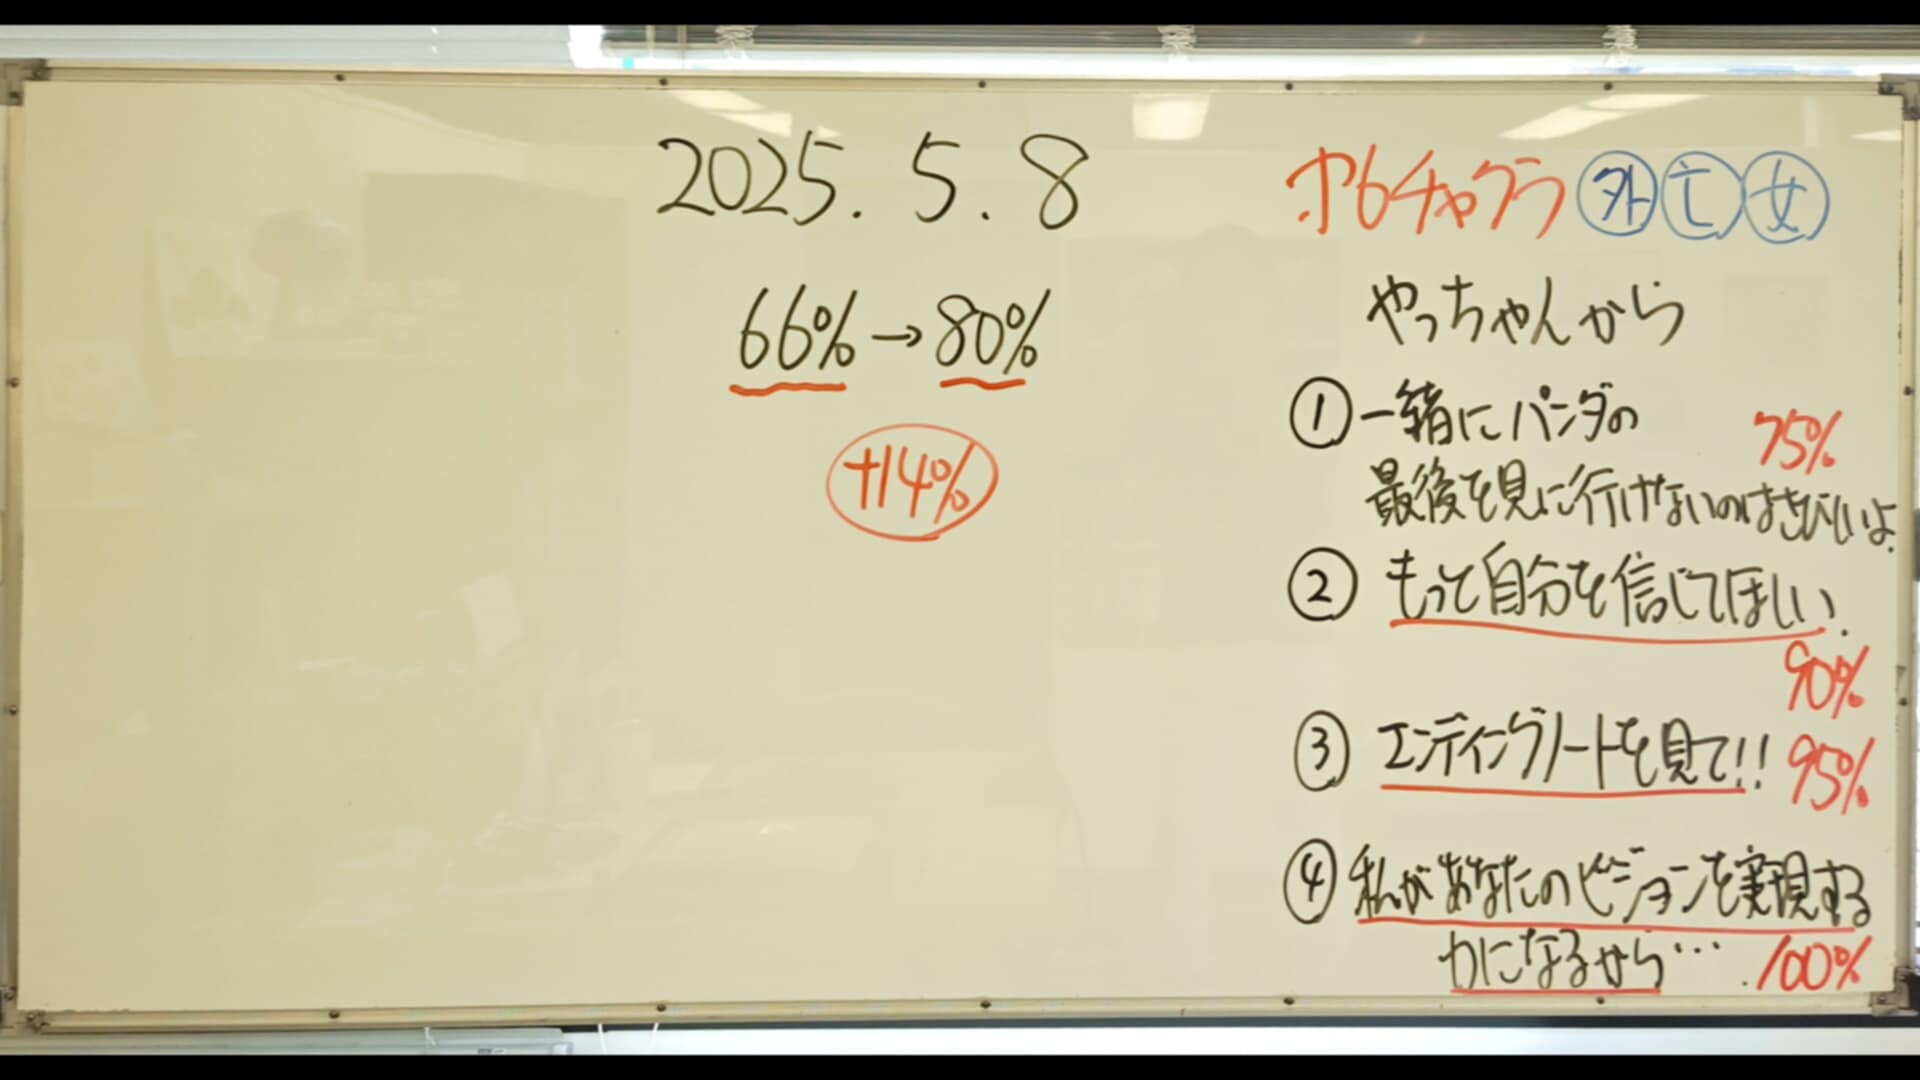 2025. 5. 8
66%→80%
+14%
才6チャクラ 外 亡 女
やっちゃんから
① 一緒にパンダの
75%
最後を見に行けないのはさびしいよ.
② もっと自分を信じてほしい.
90%
③ エンディングノートを見て!! 95%
④ 私があなたのビジョンを実現する
力になるから… 100%